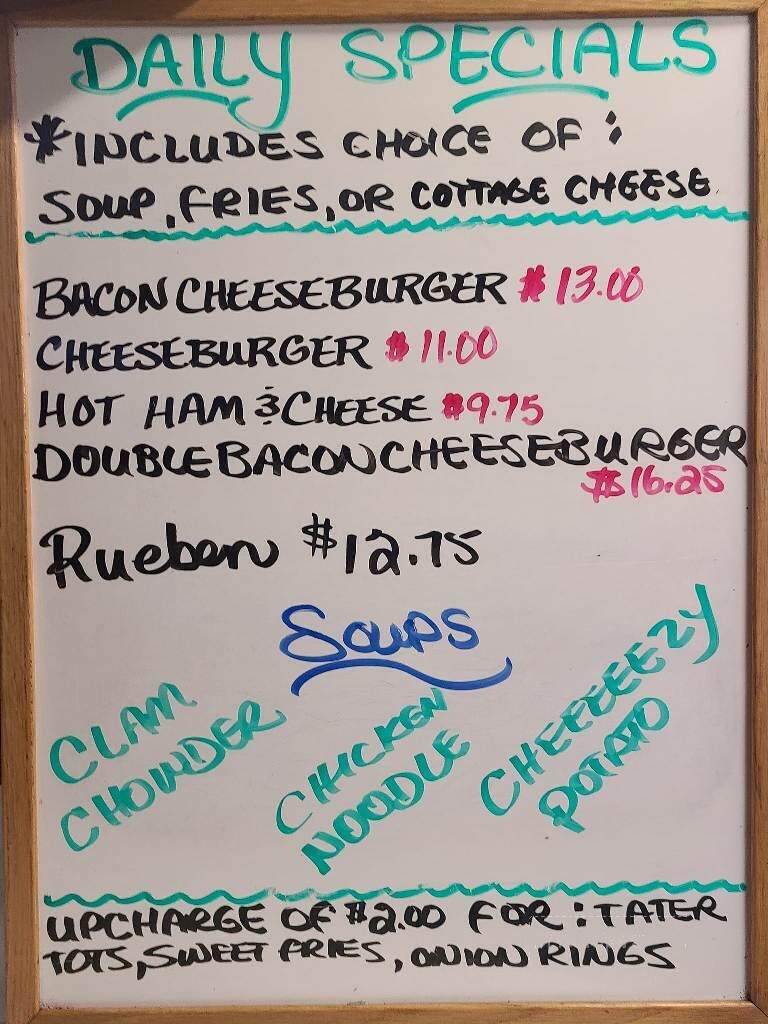 DAILY SPECIALS
*INCLUDES CHOICE OF :
SOUP, FRIES, OR COTTAGE CHEESE
BACON CHEESEBURGER $13.00
CHEESEBURGER $11.00
HOT HAM & CHEESE $9.75
DOUBLE BACON CHEESEBURGER
$16.25
Rueben $12.75
SOUPS
CLAM
CHOWDER
CHICKEN
NOODLE
CHEEEEEZY
POTATO
UPCHARGE OF $2.00 FOR : TATER
TOTS, SWEET FRIES, ONION RINGS